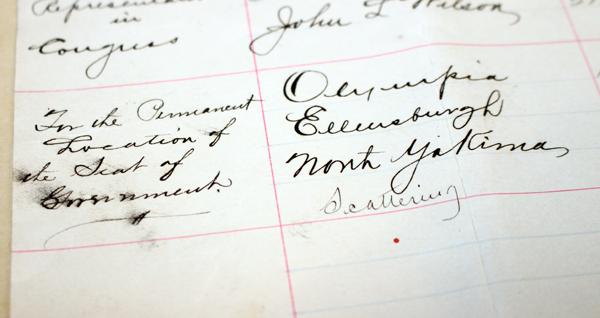 Representative
in
Congress
John L Wilson
For the Permanent
Location of
the Seat of
Government.
Olympia
Ellensburgh
North Yakima
Scattering